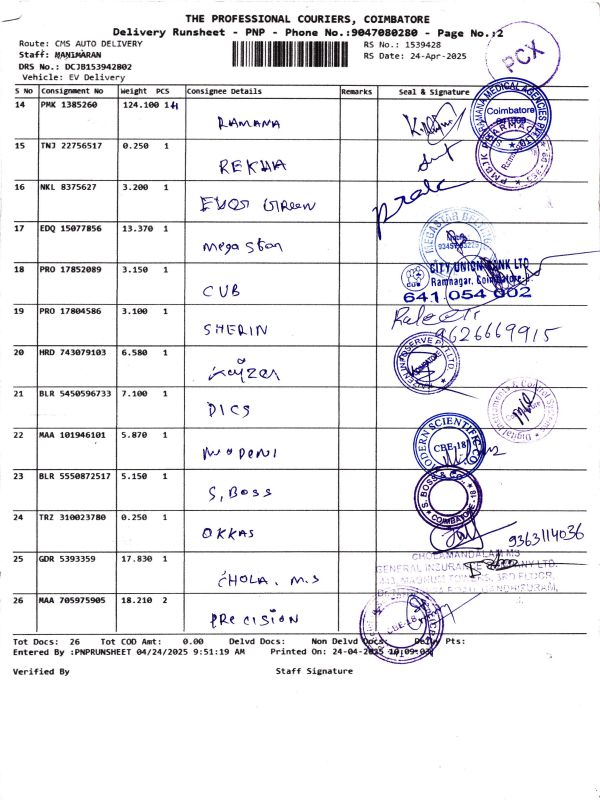 THE PROFESSIONAL COURIERS, COIMBATORE
Delivery Runsheet - PNP - Phone No.:9047080280 - Page No.:2
Route: CMS AUTO DELIVERY
RS No.: 1539428
Staff: MANIMARAN
RS Date: 24-Apr-2025
DRS No.: DCJB153942B02
Vehicle: EV Delivery
PCX
S No Consignment No Weight PCS Consignee Details Remarks Seal & Signature
14 PMK 1385260 124.100 RAMANA
Coimbatore
15 TNJ 22756517 0.250 1 REKHA
16 NKL 8375627 3.200 1 EVER GREEN
17 EDQ 15077856 13.370 1 Mega Star
18 PRO 17852089 3.150 1 CUB
CITY UNION BANK LTD
Ramnagar, Coimbatore
641 054 002
19 PRO 17804586 3.100 1 SHERIN
9626669915
20 HRD 743079103 6.580 1 Kayzen
21 BLR 5450596733 7.100 1 DICS
Digital Instruments & Control Systems
22 MAA 101946101 5.870 1
MODERN SCIENTIFIC CO.
CBE-18
23 BLR 5550872517 5.150 1 S, BOSS
S. BOSS & Co.,
COIMBATORE - 18
24 TRZ 310023780 0.250 1 OKKAS
9363114036
25 GDR 5393359 17.830 1 CHOLA. M.S
CHOLAMANDALAM MS
GENERAL INSURANCE COMPANY LTD.
MAGNUM TOWERS, 3RD FLOOR,
26 MAA 705975905 18.210 2 PRECISION
CBE-18
Tot Docs: 26 Tot COD Amt: 0.00 Delvd Docs: Non Delvd Docs: Delv Pts:
Entered By :PNPRUNSHEET 04/24/2025 9:51:19 AM Printed On: 24-04-2025 10:09:03
Verified By Staff Signature